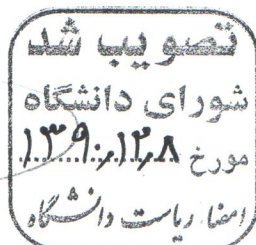 تصویب شد
شورای دانشگاه
مورخ ۱۳۹۰،۱۲،۸
امضاء ریاست دانشگاه